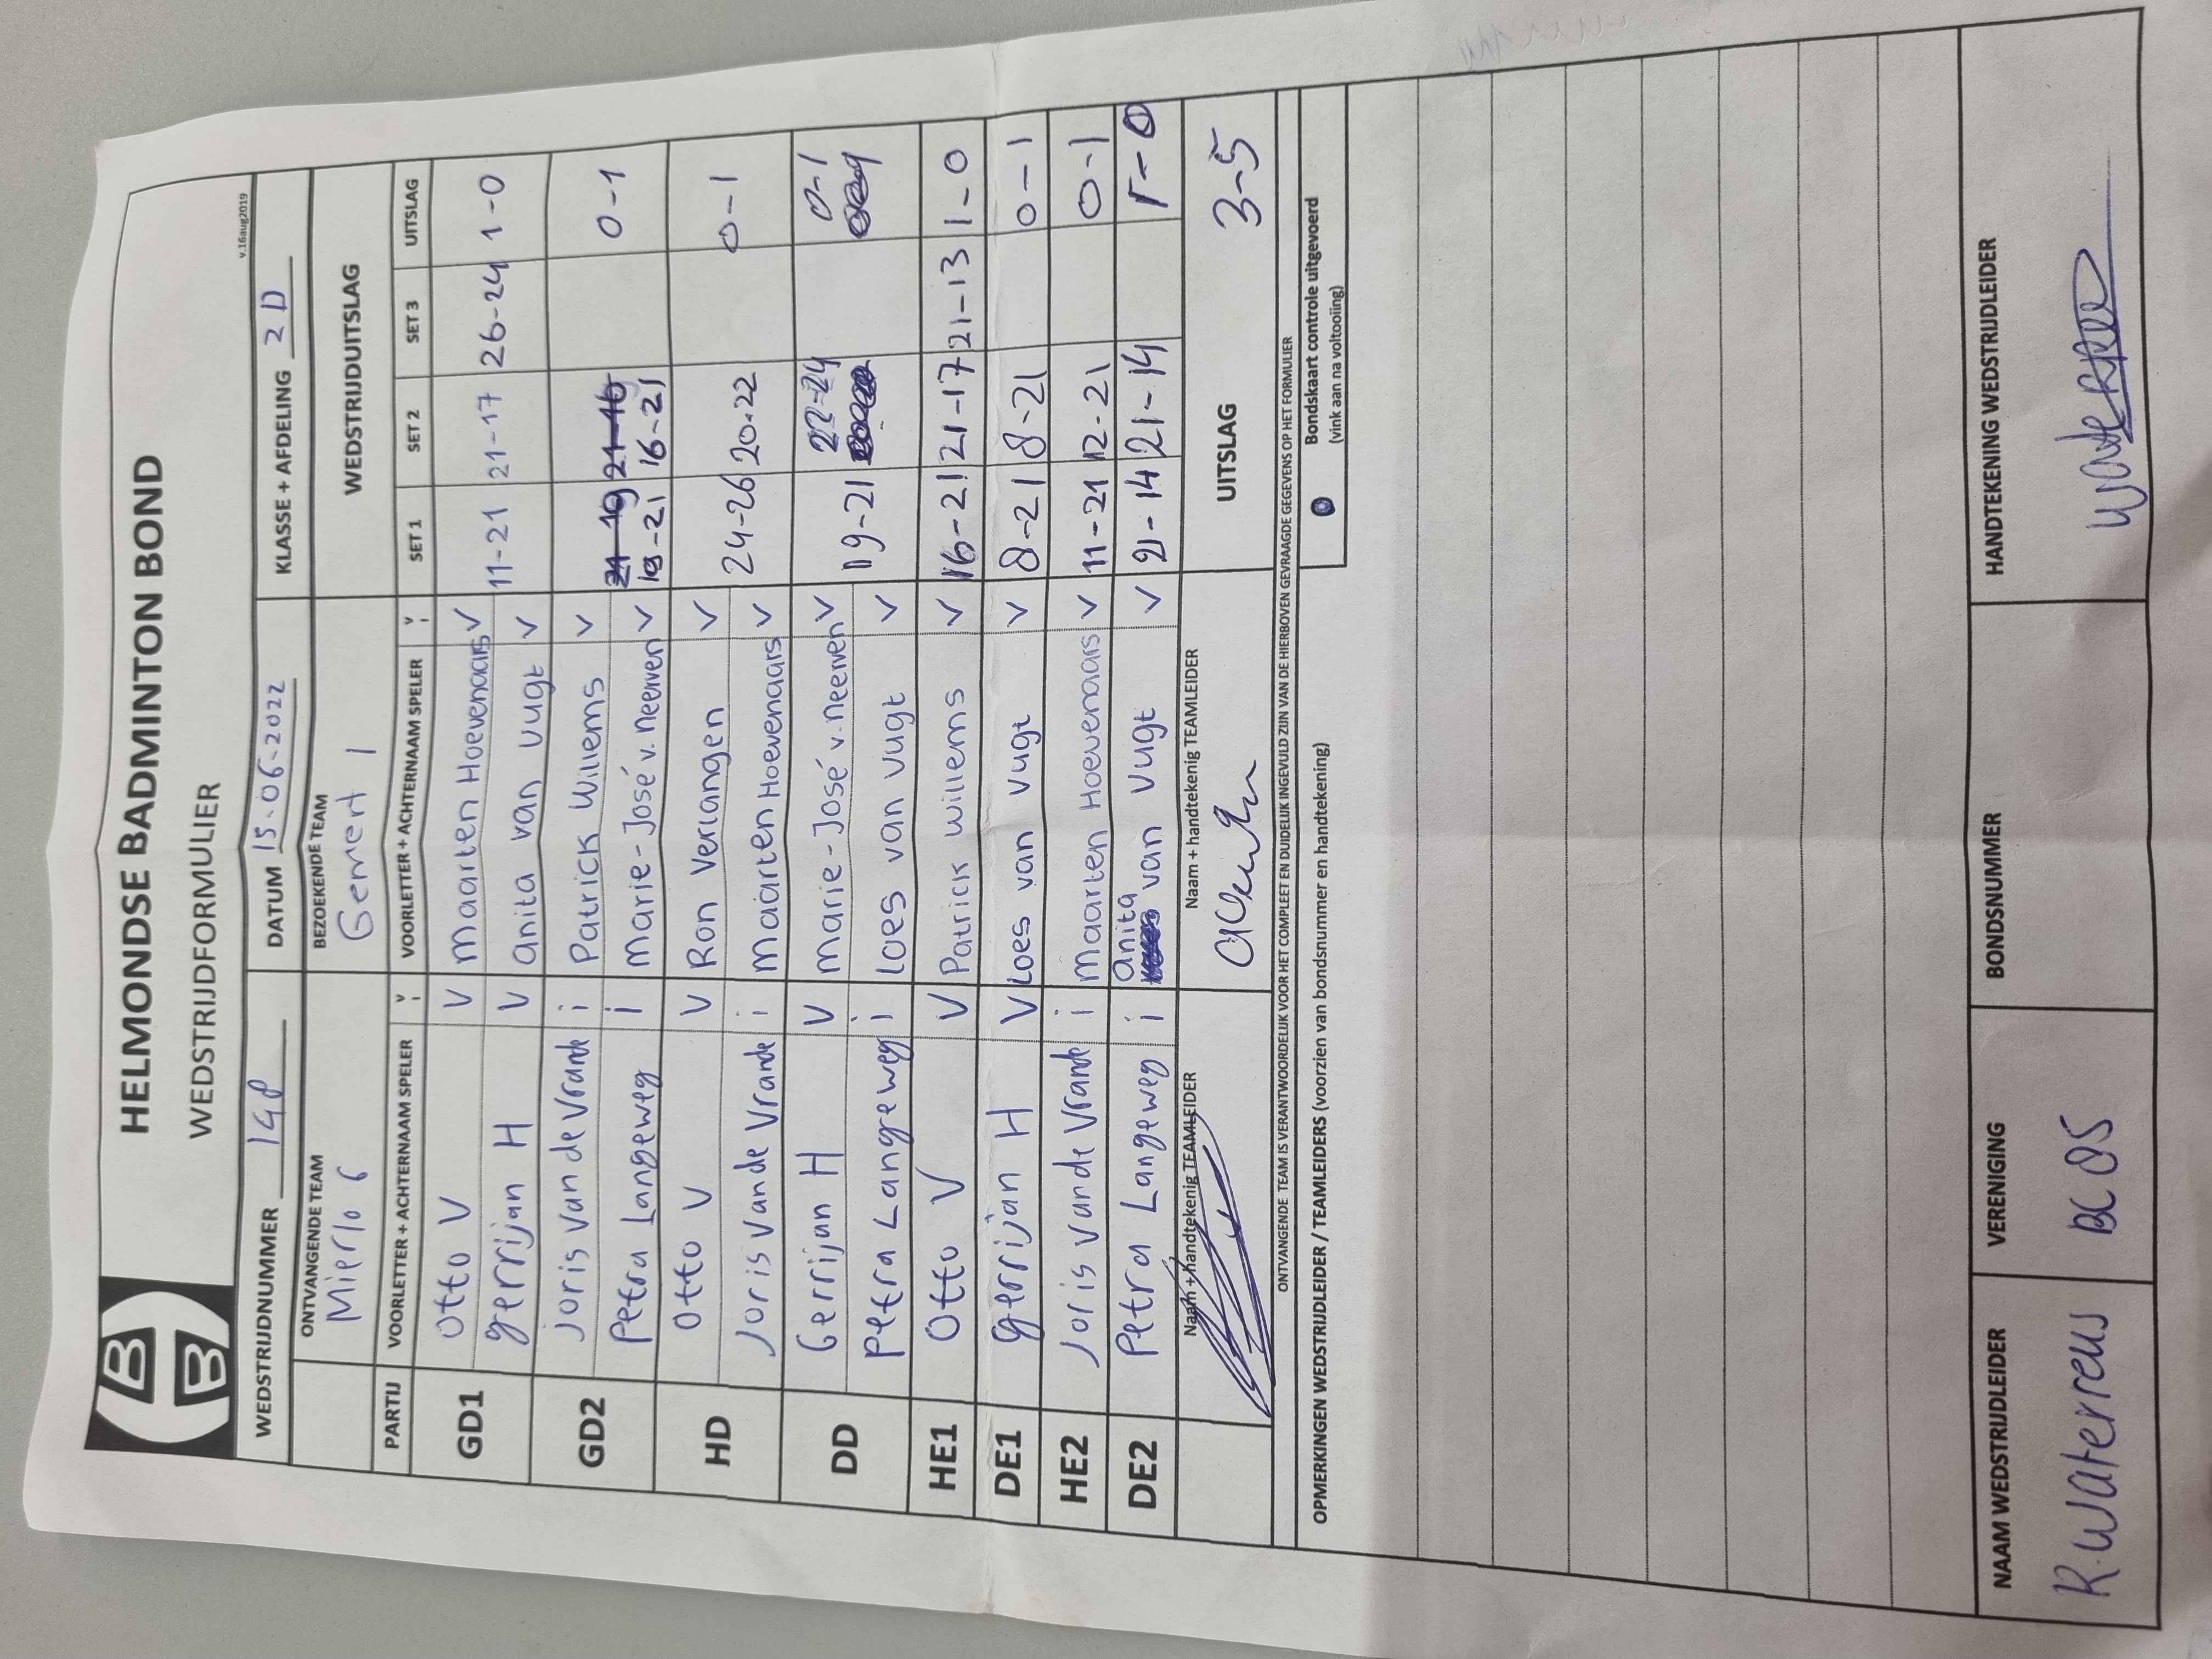 HELMONDSE BADMINTON BOND
WEDSTRIJDFORMULIER
v.16aug2019
WEDSTRIJDNUMMER 148 DATUM 15-06-2022 KLASSE + AFDELING 2D
ONTVANGENDE TEAM BEZOEKENDE TEAM WEDSTRIJDUITSLAG
Mierlo 6 Gemert 1
PARTIJ VOORLETTER + ACHTERNAAM SPELER V i VOORLETTER + ACHTERNAAM SPELER V i SET 1 SET 2 SET 3 UITSLAG
GD1 Otto V V Maarten Hoevenaars V 11-21 21-17 26-24 1-0
gerrijan H V Anita van Vugt V
GD2 Joris van de Vrande i Patrick Willems V 21-19 21-16 0-1
Petra Langeweg i Marie-José v. Neerven V 19-21 16-21
HD Otto V V Ron Verlangen V
Joris van de Vrande i Maarten Hoevenaars V 24-26 20-22 0-1
DD Gerrijan H V Marie-José v. Neerven V 22-24 0-1
Petra Langeweg i Loes van Vugt V 19-21
HE1 Otto V V Patrick Willems V 16-21 21-17 21-13 1-0
DE1 gerrijan H V Loes van Vugt V 8-21 8-21 0-1
HE2 Joris van de Vrande i Maarten Hoevenaars V 11-21 12-21 0-1
DE2 Petra Langeweg i Anita van Vugt V 21-14 21-14 1-0
Naam + handtekenig TEAMLEIDER Naam + handtekenig TEAMLEIDER UITSLAG 3-5
ONTVANGENDE TEAM IS VERANTWOORDELIJK VOOR HET COMPLEET EN DUIDELIJK INGEVULD ZIJN VAN DE HIERBOVEN GEVRAAGDE GEGEVENS OP HET FORMULIER
OPMERKINGEN WEDSTRIJDLEIDER / TEAMLEIDERS (voorzien van bondsnummer en handtekening)
Bondskaart controle uitgevoerd
(vink aan na voltooiing)
NAAM WEDSTRIJDLEIDER VERENIGING BONDSNUMMER HANDTEKENING WEDSTRIJDLEIDER
R. Waterreus BC 85